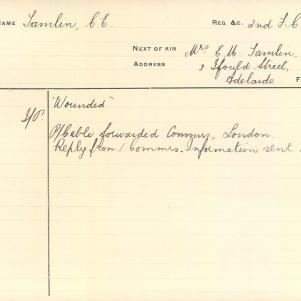 NAME Tamlin, C.E. REG. &c. 2nd F.C
NEXT OF KIN Mrs E. M. Tamlin
ADDRESS Street,
Adelaide F
"Wounded"
P/Cable forwarded Commrs, London.
Reply from / Commrs. Information sent